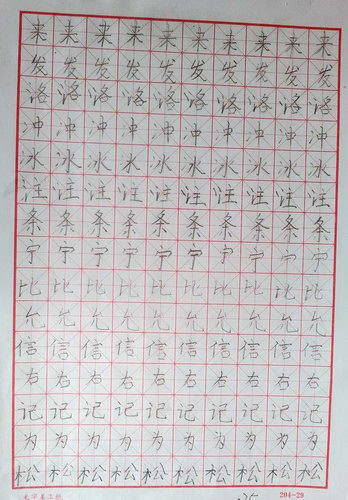 来来来来来来来来来
发发发发发发发发发
洛洛洛洛洛洛洛洛洛
冲冲冲冲冲冲冲冲冲
冰冰冰冰冰冰冰冰冰
注注注注注注注注注
条条条条条条条条条
宁宁宁宁宁宁宁宁宁
比比比比比比比比比
允允允允允允允允允
信信信信信信信信信
右右右右右右右右右
记记记记记记记记记
为为为为为为为为为
松松松松松松松松松
204-29